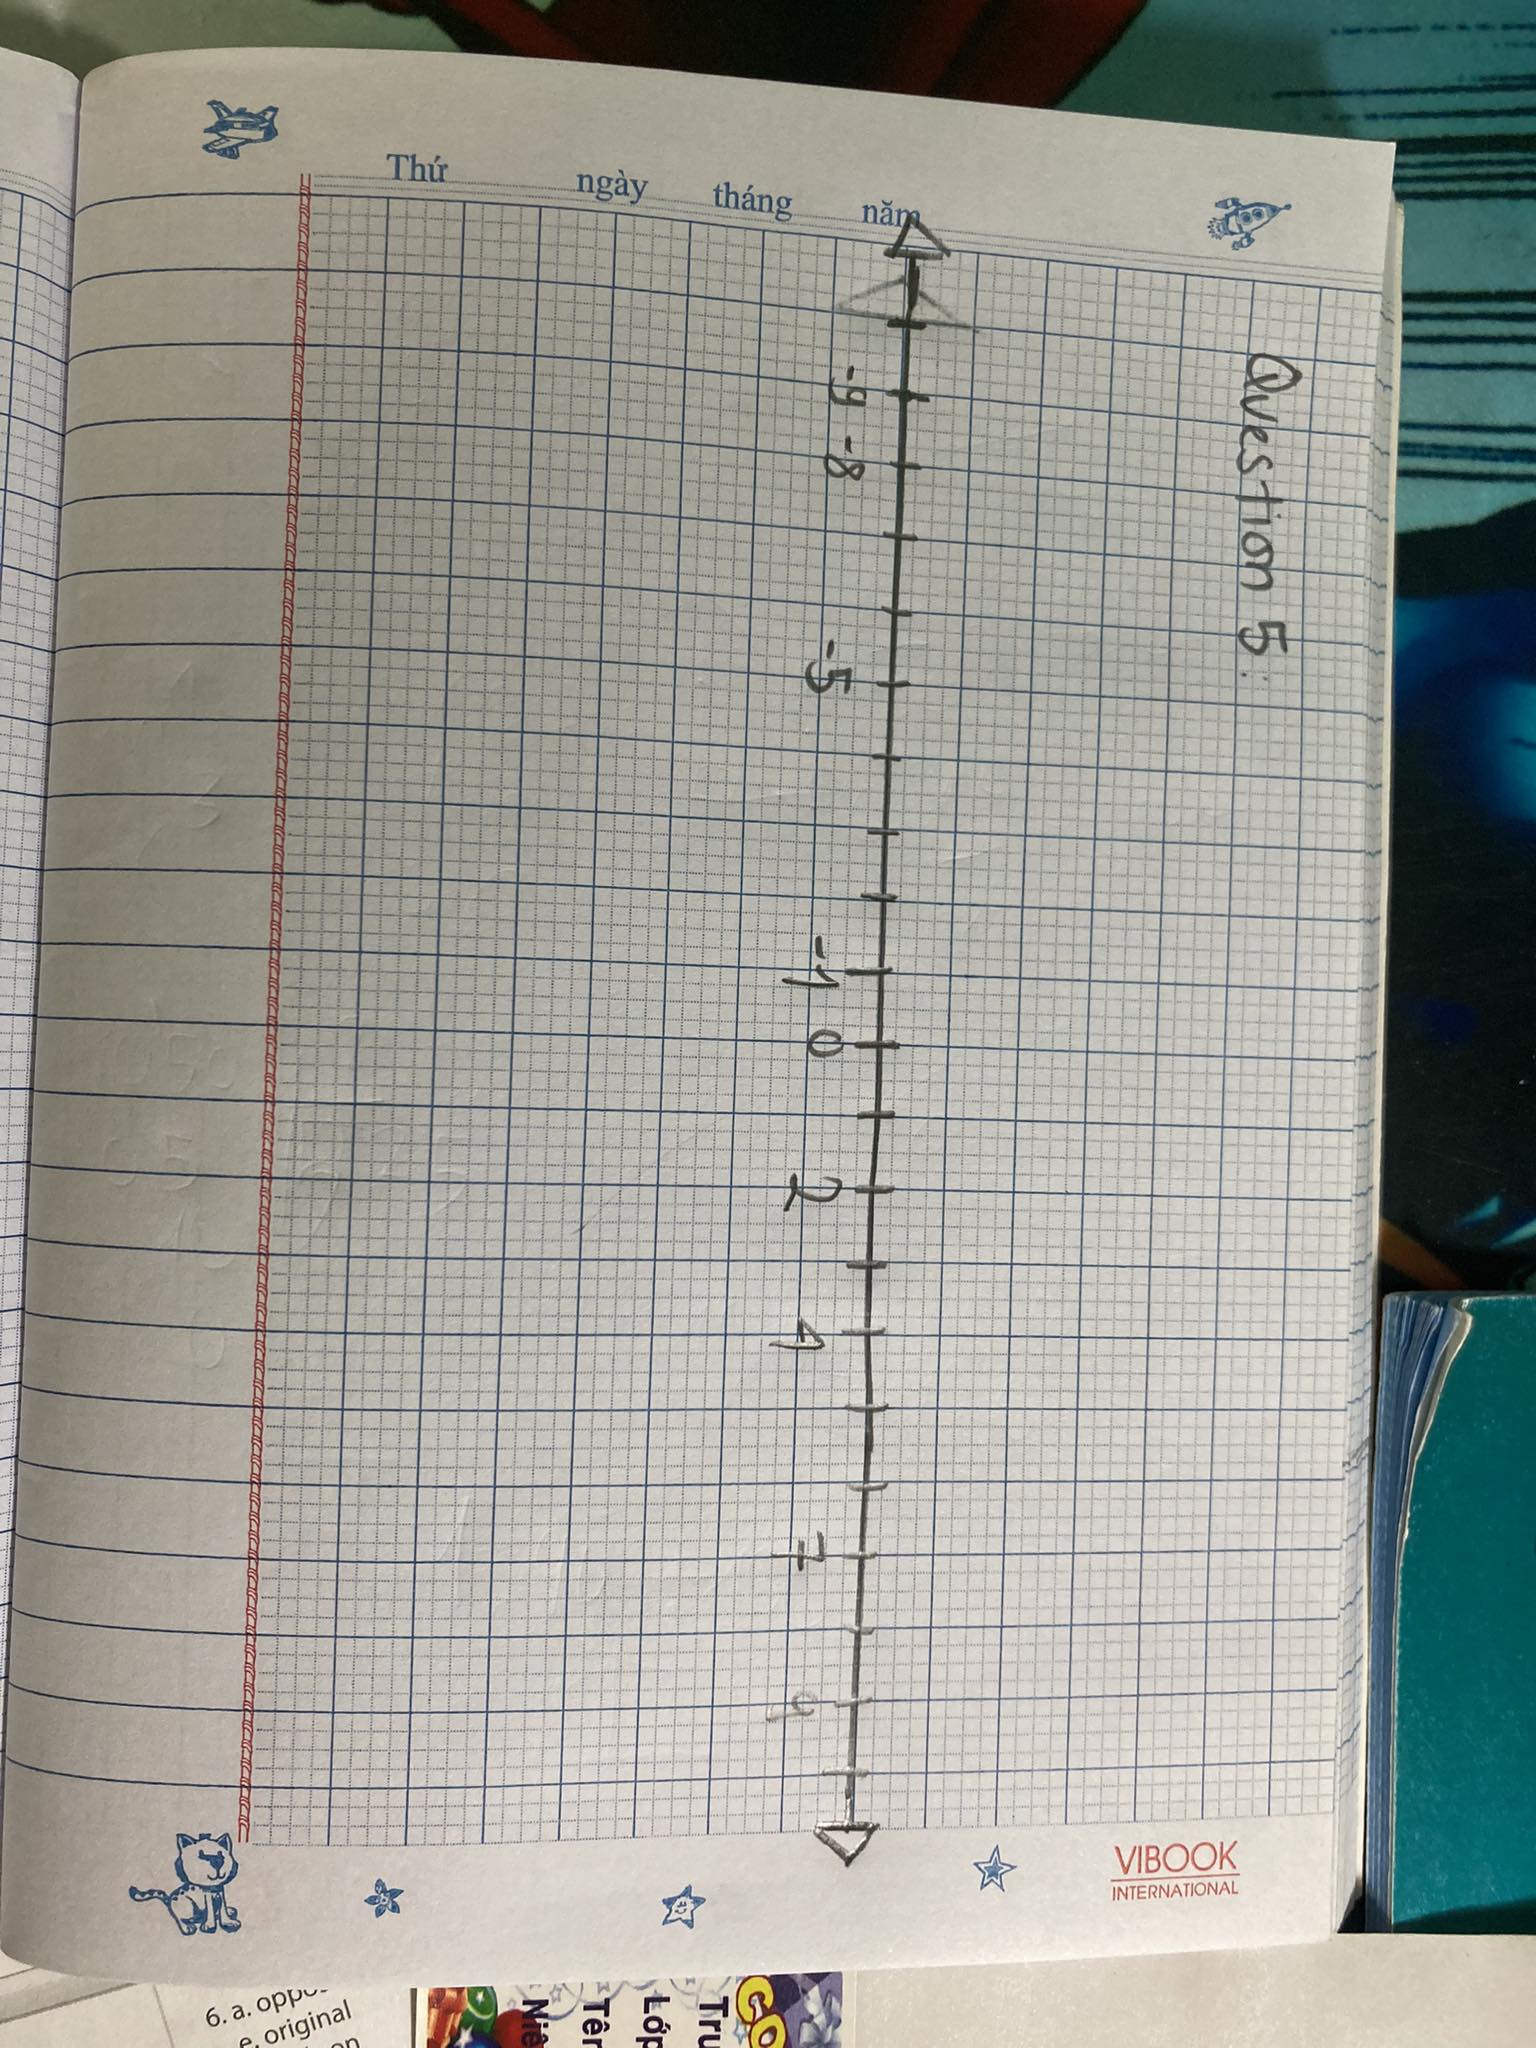 Thứ ngày tháng năm
Question 5:
-9 -8 -5 -1 0 2 4 7 9
VIBOOK
INTERNATIONAL
6. a.
e. original
Tru
Lớp
Tên
Niê